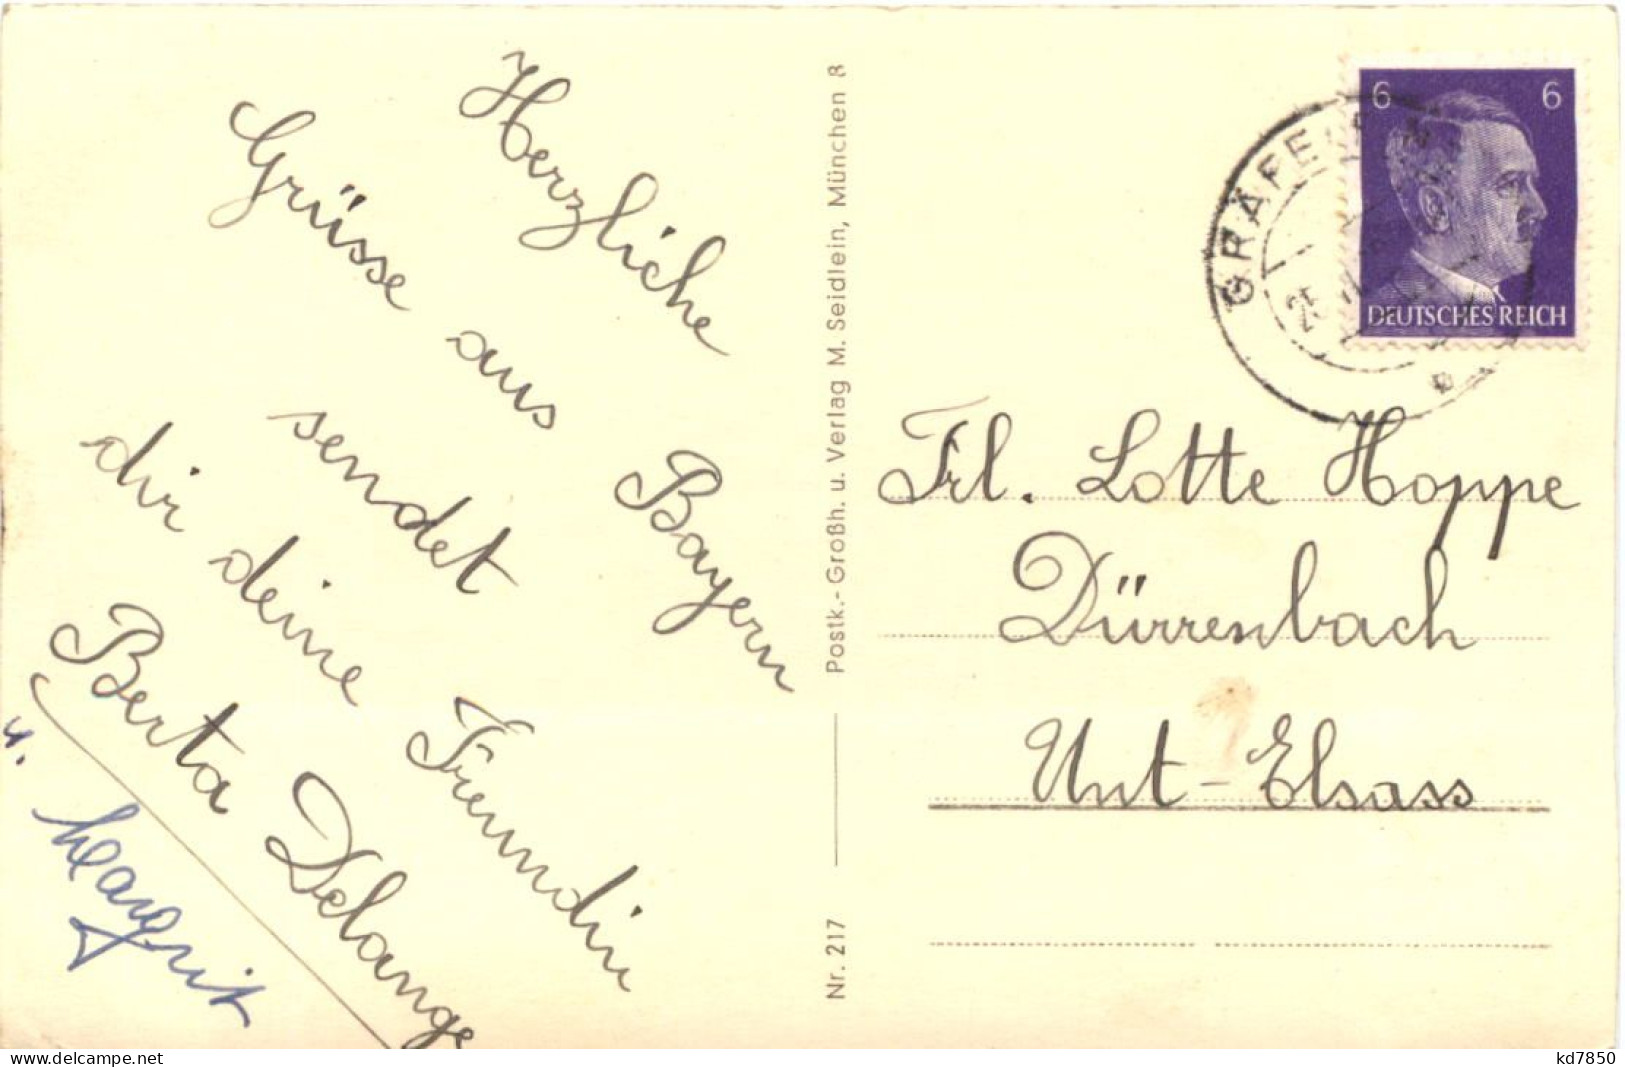 Herzliche
Grüsse aus Bayern
sendet
dir deine Freundin
Berta Delange
u. Margrit
Postk.-Großh. u. Verlag M. Seidlein, München 8
Nr. 217
6 6
DEUTSCHES REICH
GRÄFELFING
25
Frl. Lotte Hoppe
Dürrenbach
Unt-Elsass
delcampe.net
kd7850